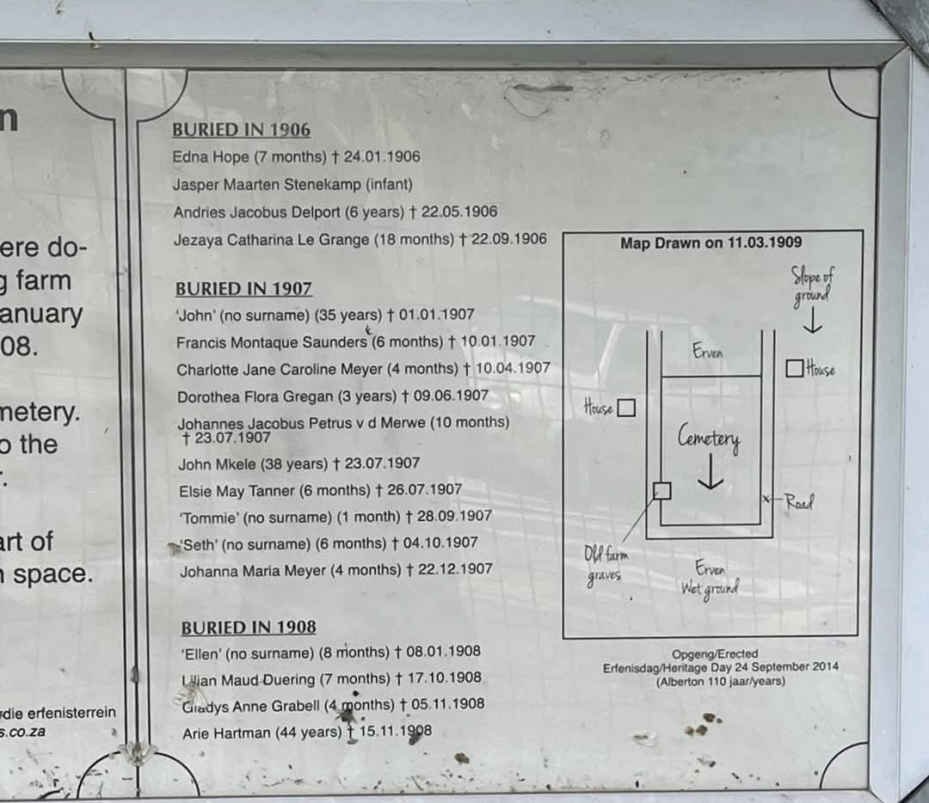 n
ere do-
g farm
anuary
08.
metery.
o the
r.
art of
n space.
die erfenisterrein
s.co.za
BURIED IN 1906
Edna Hope (7 months) † 24.01.1906
Jasper Maarten Stenekamp (infant)
Andries Jacobus Delport (6 years) † 22.05.1906
Jezaya Catharina Le Grange (18 months) † 22.09.1906
BURIED IN 1907
'John' (no surname) (35 years) † 01.01.1907
Francis Montaque Saunders (6 months) † 10.01.1907
Charlotte Jane Caroline Meyer (4 months) † 10.04.1907
Dorothea Flora Gregan (3 years) † 09.06.1907
Johannes Jacobus Petrus v d Merwe (10 months)
† 23.07.1907
John Mkele (38 years) † 23.07.1907
Elsie May Tanner (6 months) † 26.07.1907
'Tommie' (no surname) (1 month) † 28.09.1907
'Seth' (no surname) (6 months) † 04.10.1907
Johanna Maria Meyer (4 months) † 22.12.1907
BURIED IN 1908
'Ellen' (no surname) (8 months) † 08.01.1908
Lilian Maud Duering (7 months) † 17.10.1908
Gladys Anne Grabell (4 months) † 05.11.1908
Arie Hartman (44 years) † 15.11.1908
Map Drawn on 11.03.1909
Slope of
ground
Erven
House
House
Cemetery
Road
Old farm
graves
Erven
Wet ground
Opgerig/Erected
Erfenisdag/Heritage Day 24 September 2014
(Alberton 110 jaar/years)